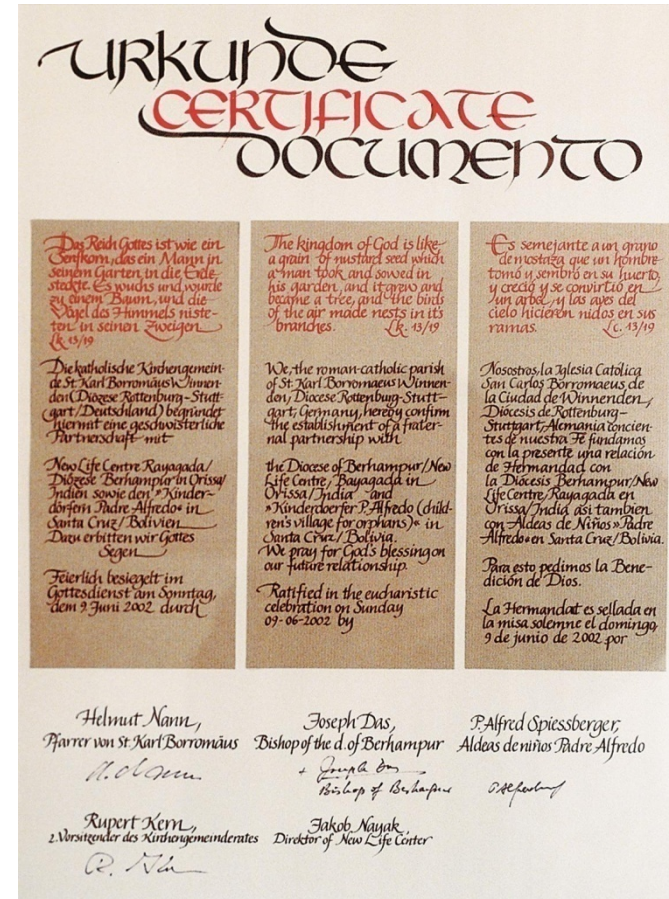 URKUNDE
CERTIFICATE
DOCUMENTO
Das Reich Gottes ist wie ein
Senfkorn, das ein Mann in
seinem Garten in die Erde
steckte. Es wuchs und wurde
zu einem Baum, und die
Vögel des Himmels niste-
ten in seinen Zweigen
Lk 13/19
Die katholische Kirchengemein-
de St. Karl Borromäus Winnen-
den (Diözese Rottenburg-Stutt-
gart/Deutschland) begründet
hiermit eine geschwisterliche
Partnerschaft mit
New Life Centre Rayagada/
Diözese Berhampur in Orissa/
Indien sowie den »Kinder-
dörfern Padre-Alfredo« in
Santa Cruz/Bolivien
Dazu erbitten wir Gottes
Segen
Feierlich besiegelt im
Gottesdienst am Sonntag,
dem 9. Juni 2002 durch
The kingdom of God is like
a grain of mustard seed which
a man took and sowed in
his garden, and it grew and
became a tree, and the birds
of the air made nests in it's
branches. Lk. 13/19
We, the roman-catholic parish
of St. Karl Borromaeus Winnen-
den, Diocese Rottenburg-Stutt-
gart, Germany, hereby confirm
the establishment of a frater-
nal partnership with
the Diocese of Berhampur/New
Life Centre, Bayagada in
Orissa/India and
»Kinderdoerfer P. Alfredo (child-
ren's village for orphans)« in
Santa Cruz/Bolivia.
We pray for God's blessing on
our future relationship
Ratified in the eucharistic
celebration on Sunday
09-06-2002 by
Es semejante a un grano
de mostaza que un hombre
tomó y sembró en su huerto,
y creció y se convirtió en
un arbol, y las aves del
cielo hicieron nidos en sus
ramas. Lc. 13/19
Nosostros, la Iglesia Católica
San Carlos Borromaeus, de
la Ciudad de Winnenden,
Diócesis de Rottenburg-
Stuttgart, Alemania concien-
tes de nuestra Fé fundamos
con la presente una relación
de Hermandad con
la Diócesis Berhampur/New
Life Centre/Rayagada en
Orissa/India asi tambien
con »Aldeas de Niños »Padre
Alfredo« en Santa Cruz/Bolivia.
Para esto pedimos la Bene-
dición de Dios.
La Hermandad es sellada en
la misa solemne el domingo,
9 de junio de 2002 por
Helmut Nann,
Pfarrer von St. Karl Borromäus
Joseph Das,
Bishop of the d. of Berhampur
+ Joseph Das
Bishop of Berhampur
P. Alfred Spiessberger,
Aldeas de niños Padre Alfredo
Rupert Kern,
2. Vorsitzender des Kirchengemeinderates
Jakob Nayak,
Direktor of New Life Center